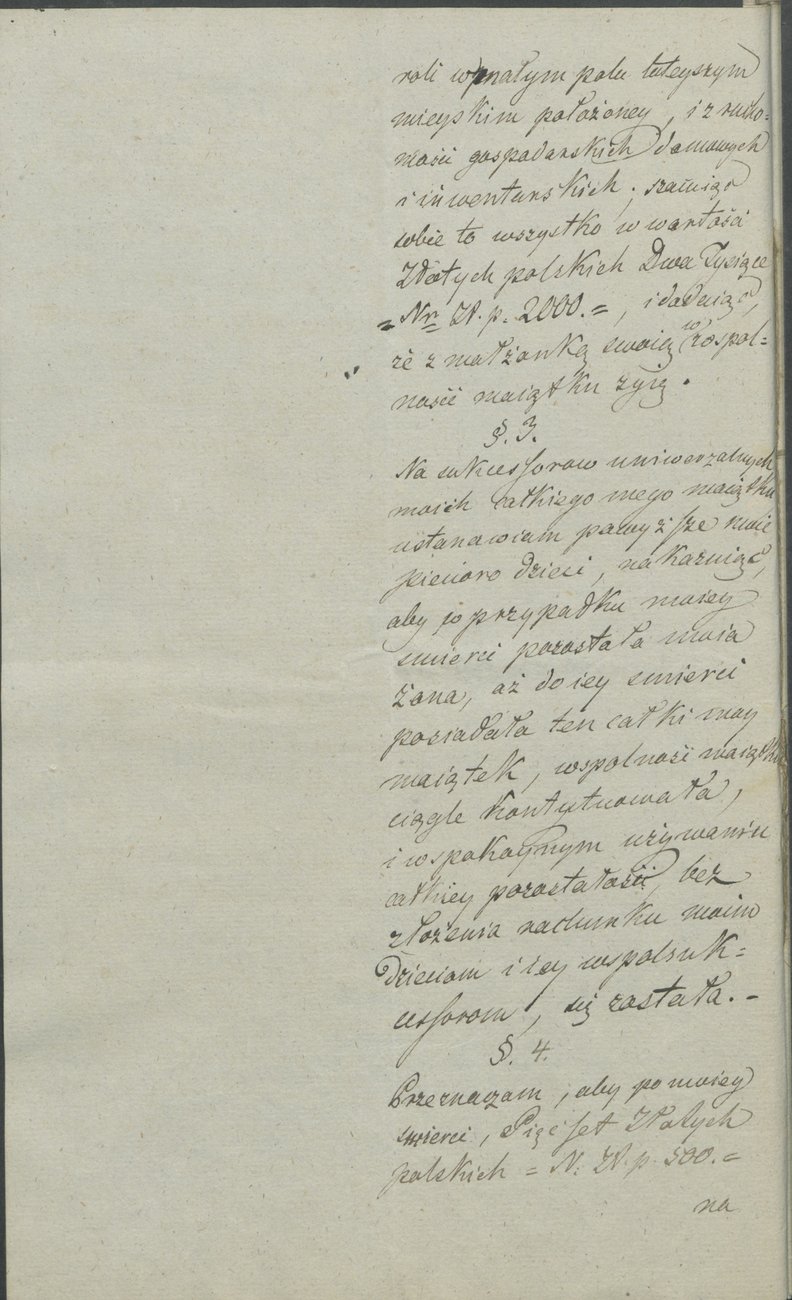 roli w małym polu tuteyszym
mieyskim położoney, i z rucho-
mości gospodarskich domowych
i inwentarskich; szacuiąc
sobie to wszystko w wartości
Złotych polskich Dwa Tysiące
= Nr Zł. p. 2000. =, i dodaiąc,
że z małżonką swoią w rospol-
ności maiątku żyię.
§. 3.
Na sukcessorow uniwerzalnych
moich całkiego mego maiątku
ustanawiam powyższe moie
pięcioro dzieci, nakazuiąc,
aby w przypadku moiey
smierci pozostała moia
żona, aż do iey smierci
posiadała ten całki moy
maiątek, wspolność maiątku
ciągle kontytuowała,
i w spokoynym używaniu
całkiey pozostałości, bez
złożenia rachunku moim
dzieciom i iey wspolsuk-
cessorom, się została. -
§. 4.
Przeznaczam, aby po moiey
smierci, Pięć set Złotych
polskich = N. Zł. p. 500. =
na